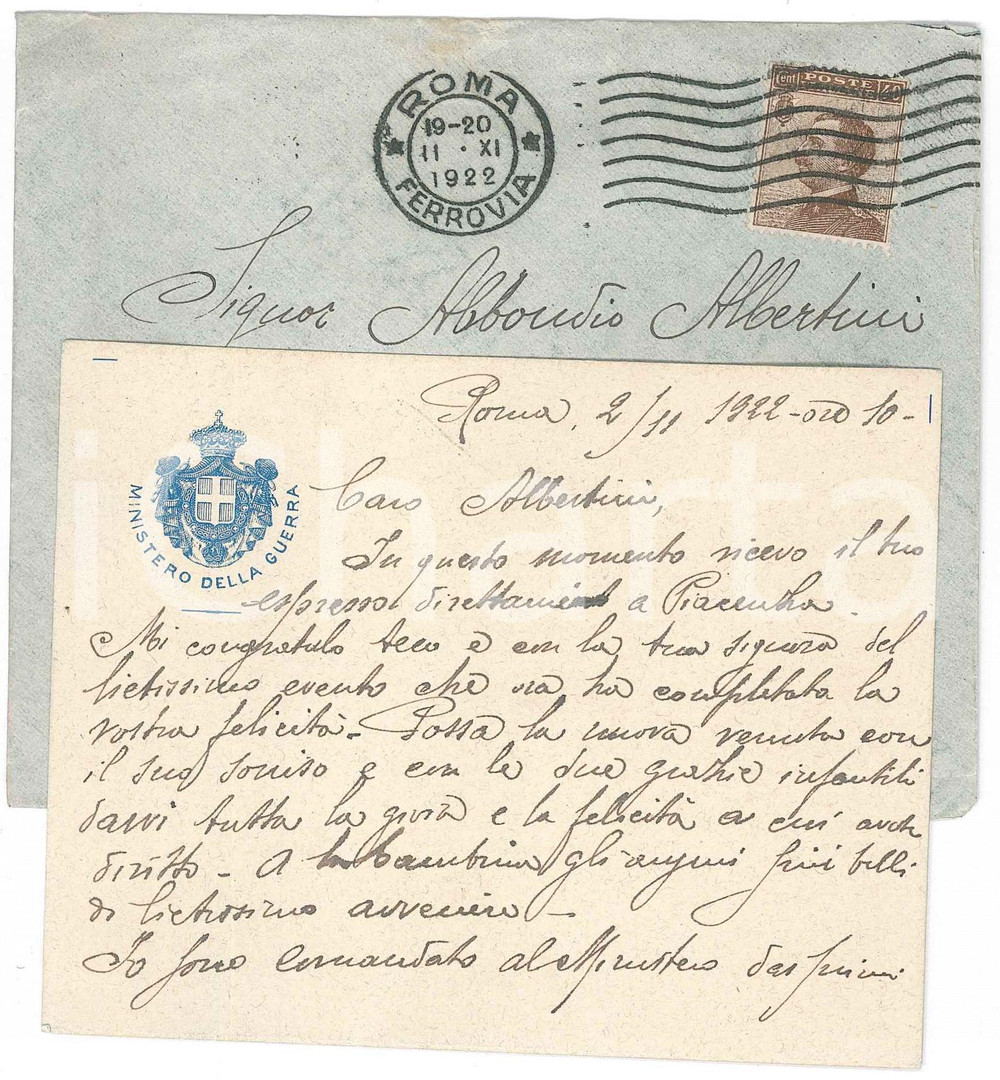 ROMA
19-20
11 · XI
1922
FERROVIA
Cent POSTE 40
Signor Abbondio Albertini
MINISTERO DELLA GUERRA
Roma, 2/11 1922 - ore 10 -
Caro Albertini,
In questo momento ricevo il tuo
espresso direttami a Piacenza.
Mi congratulo teco e con la tua signora del
lietissimo evento che ora ha completata la
vostra felicità - Possa la nuova venuta con
il suo sorriso e con le sue grazie infantili
darvi tutta la gioia e la felicità a cui avete
diritto - A la bambina gli auguri più belli
di lietissimo avvenire -
Io sono comandato al Ministero dai primi